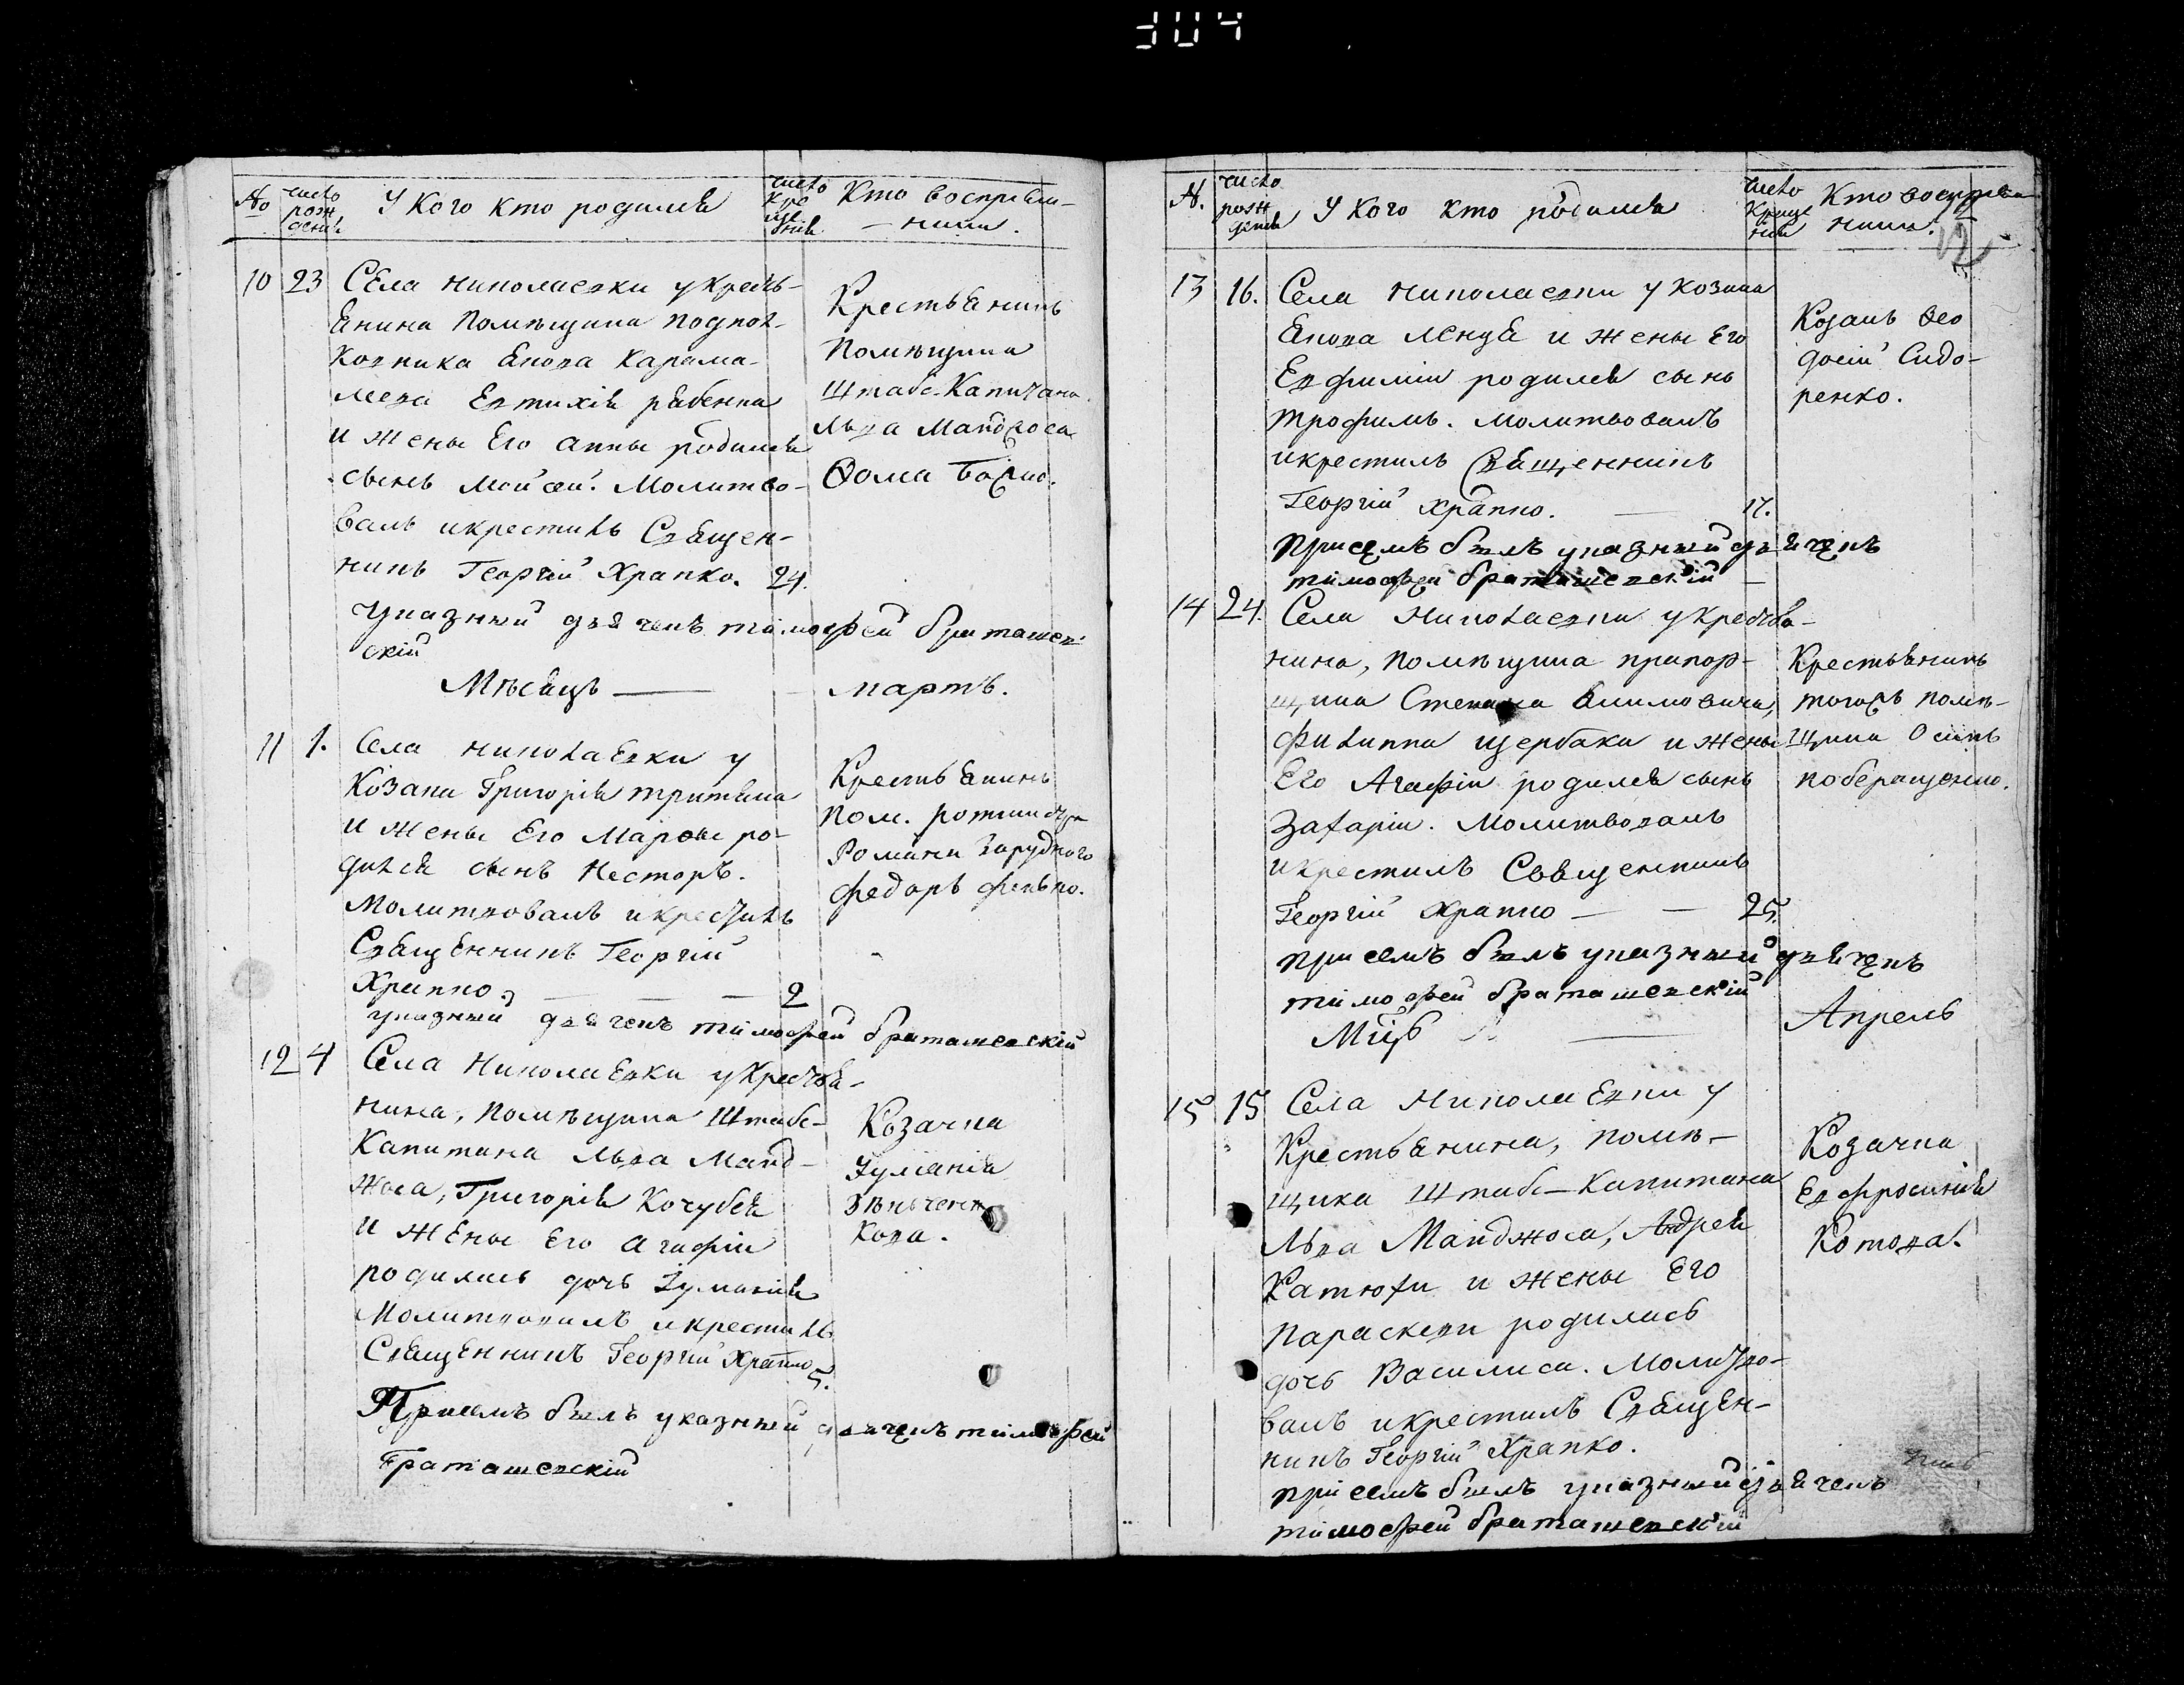 304
№ число рож дені՝ У Кого Кто родился число Кре ще нія Кто восприем-
— никъ.
10 23 Села Николаевки у кресть-
янина Помѣщика подпол-
ковника Якова Карама-
леева Евтихія рябенка
и жены Его Анны родился
сынъ Мойсей. Молитво-
валъ и крестилъ Священ-
никъ Георгій Храпко. 24.
Крестьянинъ
Помѣщика
Штабс-Капитана
Льва Мандроса
Ѳома
Указный дьячекъ тимофей браташев-
скій
Мѣсяцъ — мартъ.
11 1. Села николаевки у
Козака Григорія
и жены Его Марфы ро-
дился сынъ Несторъ.
Молитвовалъ и крестилъ
Священникъ Георгій
Храпко. — — — 2
Крестьянинъ
Пом.
Романа Зарудного
федоръ
указный дьячекъ тимофей браташевскій
12 4 Села Николаевки у Крестья-
нина, помѣщика Штабс-
Капитана Льва Манд-
жоса, Григорія Кочубея
и жены Его Агафіи
родилась дочь Іуліанія
Молитвовалъ и крестилъ
Священникъ Георгій Храпко 5.
Козачка
Іуліанія
Зѣньченк
кова.
При семъ былъ указный дьячекъ тимофей
Браташевскій
№. число рож денія У Кого Кто родился число Креще нія Кто восприем
никъ.
12
13 16. Села Николаевки у козака
Якова Ленця и жены Его
Евфиміи родился сынъ
Трофимъ. Молитвовалъ
и крестилъ Священникъ
Георгій Храпко. — 17.
Козакъ Ѳео
досій Сидо-
ренко.
при семъ былъ указный дьячекъ
тимофей браташевскій —
14 24. Села Николаевки у Крестья-
нина, помѣщика прапор-
щика Степана Акимовича,
Филиппа щербака и жены
Его Агафіи родился сынъ
Захарій. Молитвовалъ
и крестилъ Священникъ
Георгій Храпко — — 25.
Крестьянинъ
тогожъ помѣ-
щика Осипъ
при семъ былъ указный дьячекъ
тимофей браташевскій
Мцъ — Апрель
15 15 Села Николаевки у
Крестьянина, помѣ-
щика Штабс-Капитана
Льва Манджоса, Андрея
Катюхи и жены Его
Параскевы родилась
дочь Василиса. Молитво-
валъ и крестилъ Священ-
никъ Георгій Храпко.
Козачка
Евфросинія
Котова.
при семъ былъ указный дьячекъ
тимофей браташевскій